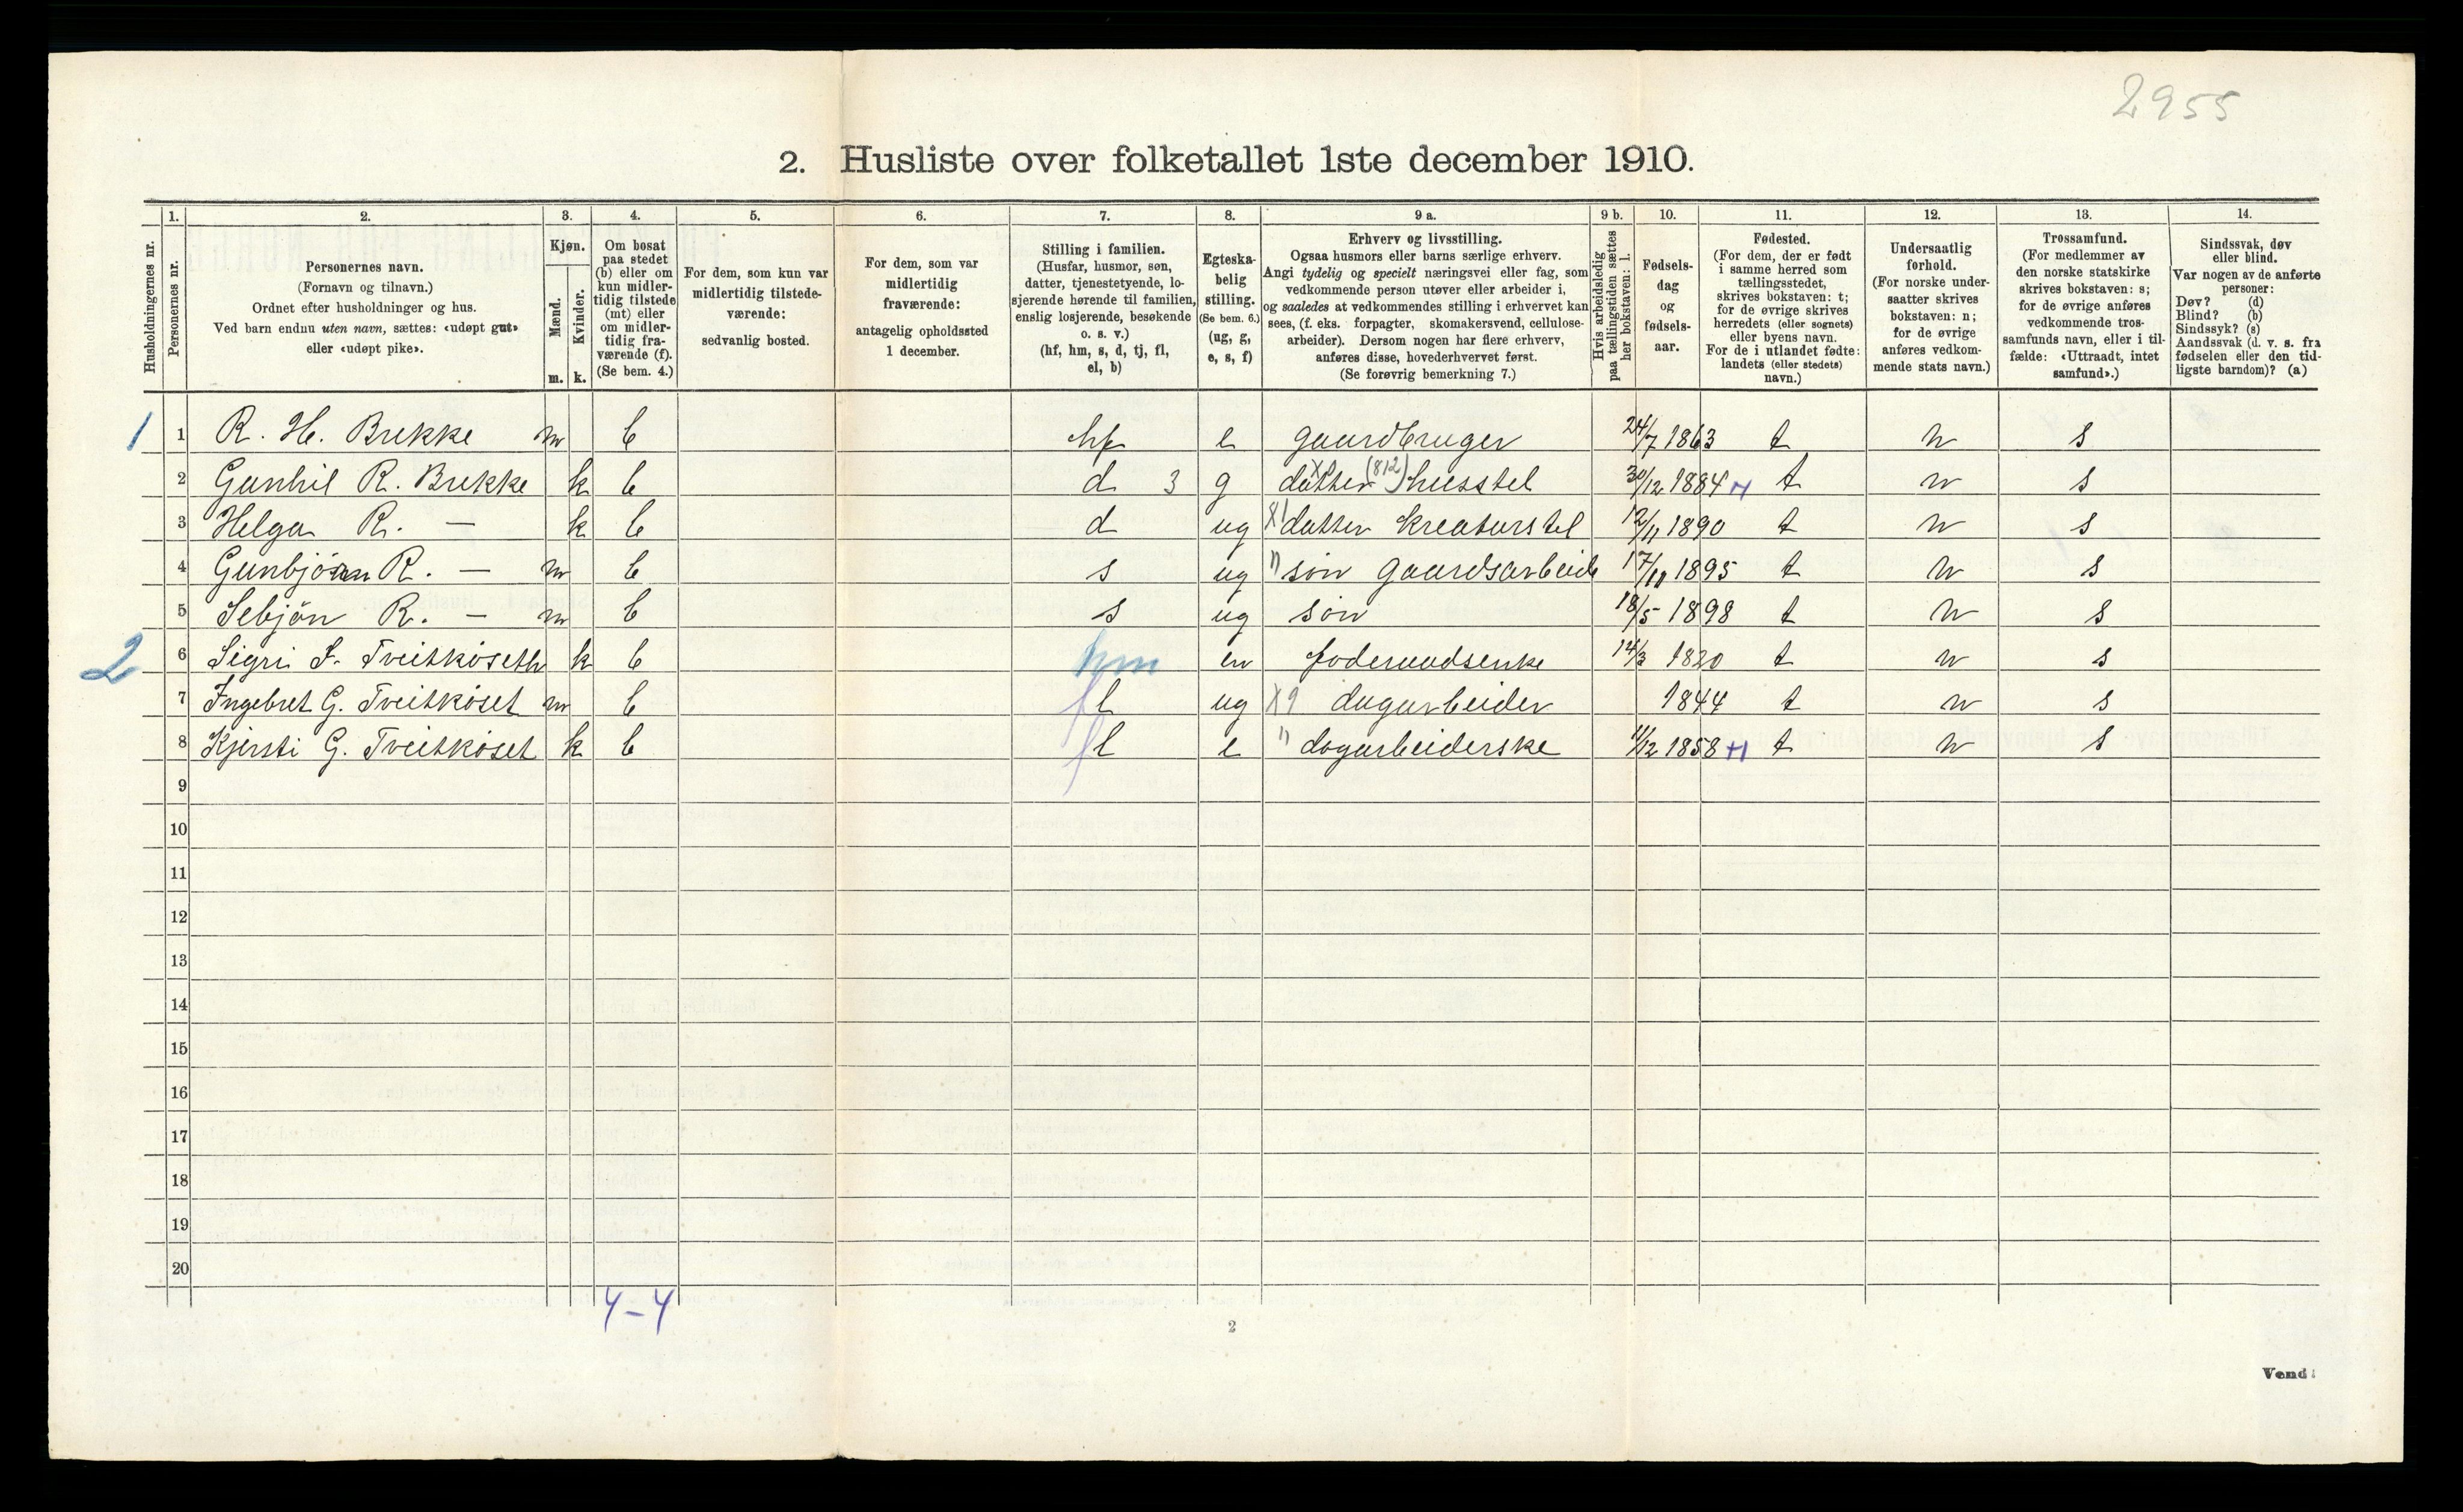 2955
2. Husliste over folketallet 1ste december 1910.
1. 2. 3. 4. 5. 6. 7. 8. 9 a. 9 b. 10. 11. 12. 13. 14.
Husholdningernes nr.
Personernes nr.
Personernes navn.
(Fornavn og tilnavn.)
Ordnet efter husholdninger og hus.
Ved barn endnu uten navn, sættes: «udøpt gut»
eller «udøpt pike».
Kjøn.
Mænd.
Kvinder.
m. k.
Om bosat
paa stedet
(b) eller om
kun midler-
tidig tilstede
(mt) eller
om midler-
tidig fra-
værende (f).
(Se bem. 4.)
For dem, som kun var
midlertidig tilstede-
værende:
sedvanlig bosted.
For dem, som var
midlertidig
fraværende:
antagelig opholdssted
1 december.
Stilling i familien.
(Husfar, husmor, søn,
datter, tjenestetyende, lo-
sjerende hørende til familien,
enslig losjerende, besøkende
o. s. v.)
(hf, hm, s, d, tj, fl,
el, b)
Egteska-
belig
stilling.
(Se bem. 6.)
(ug, g,
e, s, f)
Erhverv og livsstilling.
Ogsaa husmors eller barns særlige erhverv.
Angi tydelig og specielt næringsvei eller fag, som
vedkommende person utøver eller arbeider i,
og saaledes at vedkommendes stilling i erhvervet kan
sees, (f. eks. forpagter, skomakersvend, cellulose-
arbeider). Dersom nogen har flere erhverv,
anføres disse, hovederhvervet først.
(Se forøvrig bemerkning 7.)
Hvis arbeidsledig
paa tællingstiden sættes
her bokstaven: l.
Fødsels-
dag
og
fødsels-
aar.
Fødested.
(For dem, der er født
i samme herred som
tællingsstedet,
skrives bokstaven: t;
for de øvrige skrives
herredets (eller sognets)
eller byens navn.
For de i utlandet fødte:
landets (eller stedets)
navn.)
Undersaatlig
forhold.
(For norske under-
saatter skrives
bokstaven: n;
for de øvrige
anføres vedkom-
mende stats navn.)
Trossamfund.
(For medlemmer av
den norske statskirke
skrives bokstaven: s;
for de øvrige anføres
vedkommende tros-
samfunds navn, eller i til-
fælde: «Uttraadt, intet
samfund».)
Sindssvak, døv
eller blind.
Var nogen av de anførte
personer:
Døv? (d)
Blind? (b)
Sindssyk? (s)
Aandssvak (d. v. s. fra
fødselen eller den tid-
ligste barndom)? (a)
1 1 R. H. Brekke m b hf e gaardbruger 24/7 1863 t n s
2 Gunhil R. Brekke k b d 3 g datter (812) husstel 30/12 1884 t n s
3 Helga R. — k b d ug datter kreaturstel 12/11 1890 t n s
4 Gunbjörn R. — m b s ug " sön gaardsarbeide 17/11 1895 t n s
5 Sebjön R. — m b s ug sön 18/5 1898 t n s
2 6 Sigri S. Tveitköseth k b hm en foderaadsenke 14/3 1820 t n s
7 Ingebret G. Tveitköset m b fl ug dagarbeider 1844 t n s
8 Kjersti G. Tveitköset k b fl e " dagarbeiderske 11/12 1858 t n s
9
10
11
12
13
14
15
16
17
18
19
20
4-4
2
Vend!